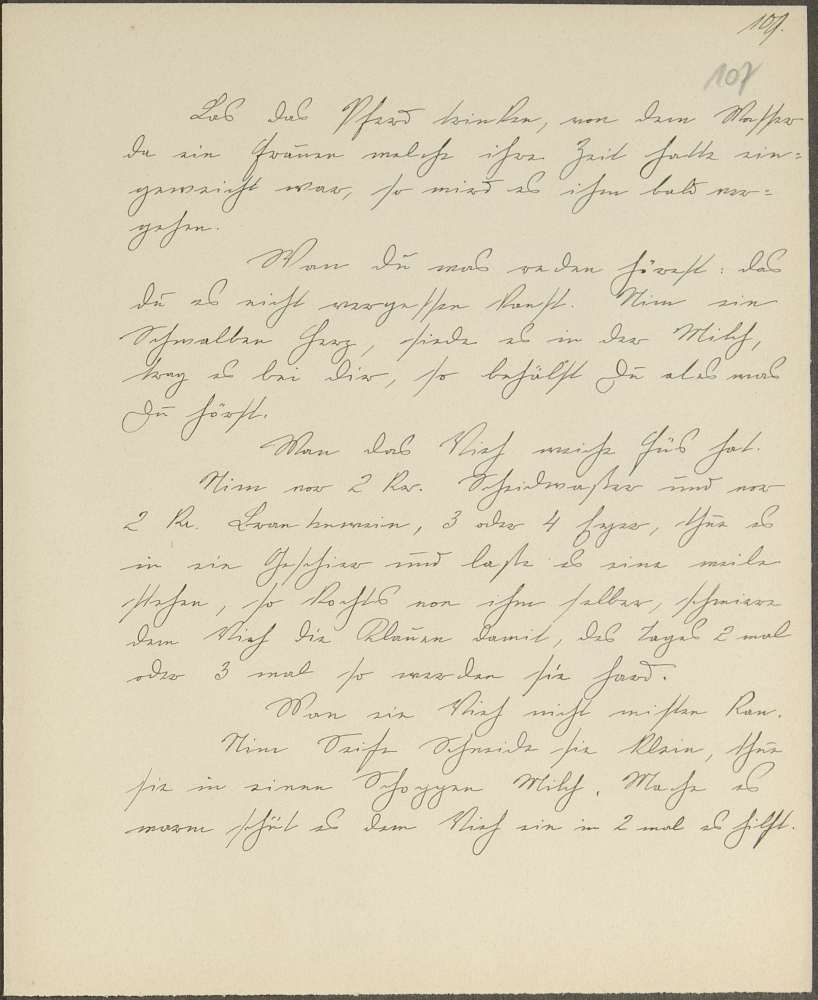 109.
107
Las das Pferd trinken, von dem Wasser
da ein Frauen welche ihre Zeit hatte ein=
geweicht war, so wird es ihm bald ver=
gehen.
Wan Du was reden hörest: das
du es nicht vergessen kanst. Nim ein
Schwalben Herz, siede es in der Milch,
trag es bei dir, so behälst Du ales was
Du hörst.
Wan das Vieh weiche Füs hat.
Nim vor 2 Kr. Scheidwaßer und vor
2 Kr. Brantenwein, 3 oder 4 Eyer, thue es
in ein Geschier und laße es eine weile
stehen, so kochts von ihm selber, schmiere
dem Vieh die Klauen damit, des Tages 2 mal
oder 3 mal so werden sie hard.
Wan ein Vieh nicht misten kan.
Nim Seife Schneide sie klein, thue
sie in einen Schoppen Milch. Mache es
warm schüt es dem Vieh ein in 2 mal es hilft.